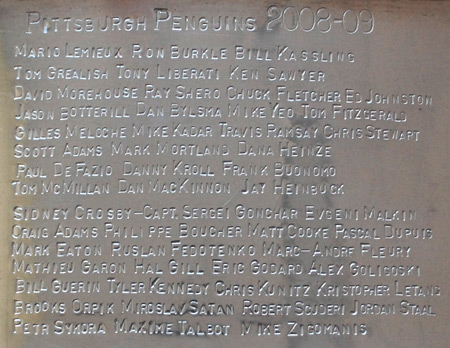 PITTSBURGH PENGUINS 2008-09
MARIO LEMIEUX RON BURKLE BILL KASSLING
TOM GREALISH TONY LIBERATI KEN SAWYER
DAVID MOREHOUSE RAY SHERO CHUCK FLETCHER ED JOHNSTON
JASON BOTTERILL DAN BYLSMA MIKE YEO TOM FITZGERALD
GILLES MELOCHE MIKE KADAR TRAVIS RAMSAY CHRIS STEWART
SCOTT ADAMS MARK MORTLAND DANA HEINZE
PAUL DE FAZIO DANNY KROLL FRANK BUONOMO
TOM MCMILLAN DAN MACKINNON JAY HEINBUCK
SIDNEY CROSBY-CAPT. SERGEI GONCHAR EVGENI MALKIN
CRAIG ADAMS PHILIPPE BOUCHER MATT COOKE PASCAL DUPUIS
MARK EATON RUSLAN FEDOTENKO MARC-ANDRE FLEURY
MATHIEU GARON HAL GILL ERIC GODARD ALEX GOLIGOSKI
BILL GUERIN TYLER KENNEDY CHRIS KUNITZ KRISTOPHER LETANG
BROOKS ORPIK MIROSLAV SATAN ROBERT SCUDERI JORDAN STAAL
PETR SYKORA MAXIME TALBOT MIKE ZIGOMANIS